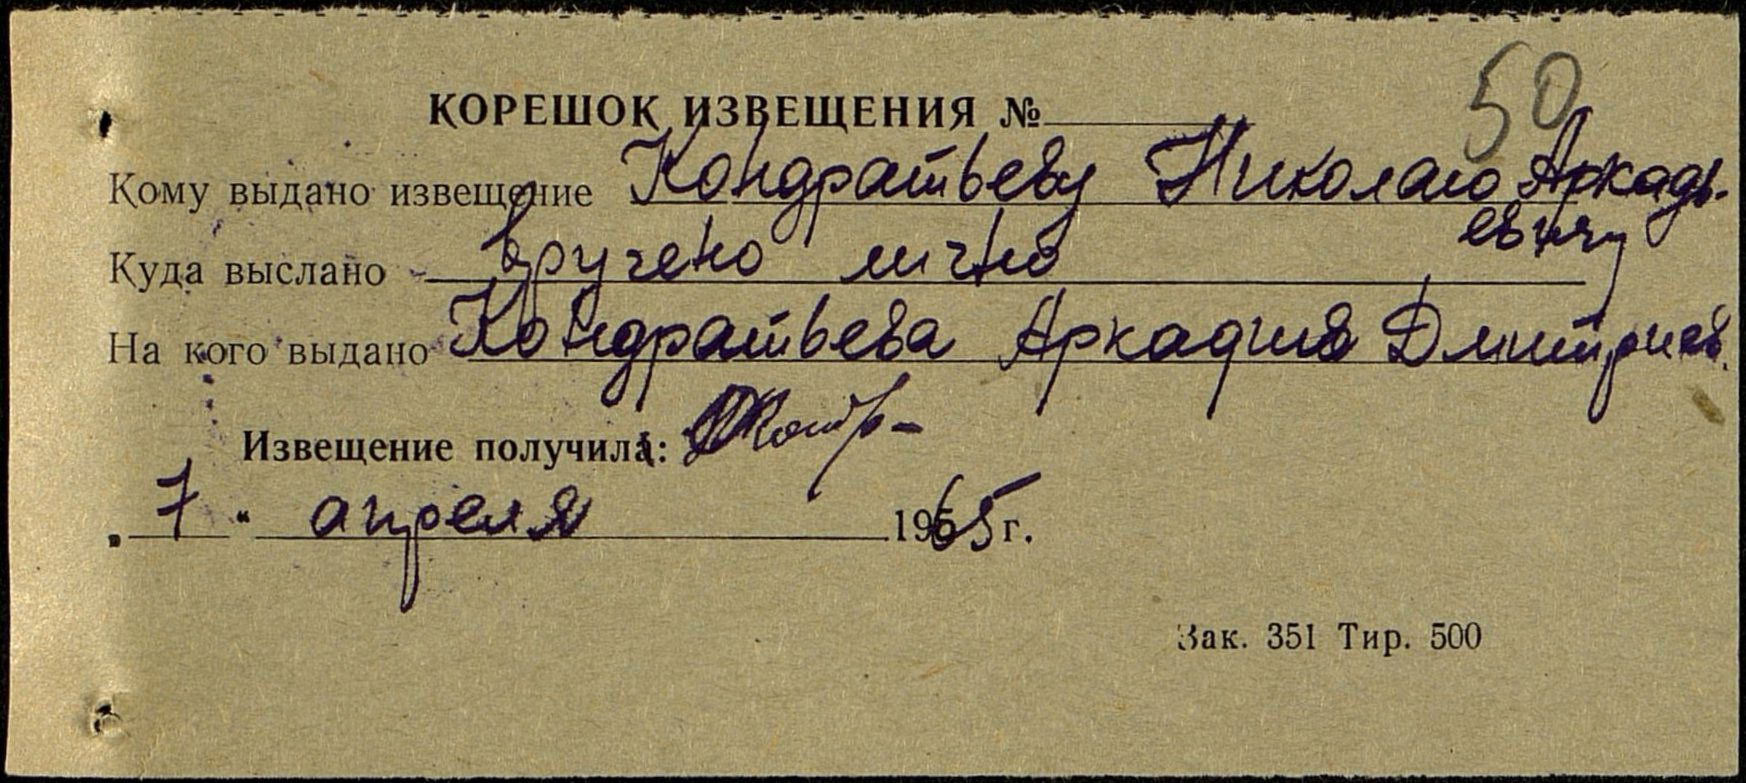 50
КОРЕШОК ИЗВЕЩЕНИЯ №
Кому выдано извещение Кондратьеву Николаю Аркадь-
евичу
Куда выслано вручено лично
На кого выдано Кондратьева Аркадия Дмитриев.
Извещение получила:
„ 7 “ апреля 1965 г.
Зак. 351 Тир. 500